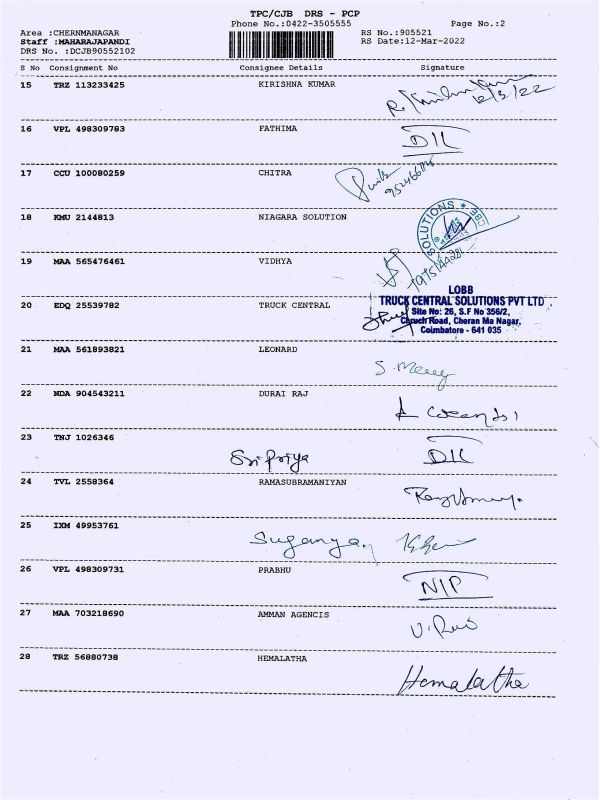 TPC/CJB DRS - PCP
Phone No.:0422-3505555 Page No.:2
Area :CHERNMANAGAR RS No.:905521
Staff :MAHARAJAPANDI RS Date:12-Mar-2022
DRS No. :DCJB90552102
S No Consignment No Consignee Details Signature
15 TRZ 113233425 KIRISHNA KUMAR
12/3/22
16 VPL 498309783 FATHIMA
DIL
17 CCU 100080259 CHITRA
18 KMU 2144813 NIAGARA SOLUTION
SOLUTIONS * CBE
19 MAA 565476461 VIDHYA
LOBB
20 EDQ 25539782 TRUCK CENTRAL
TRUCK CENTRAL SOLUTIONS PVT LTD
Site No: 26, S.F No 356/2,
Church Road, Cheran Ma Nagar,
Coimbatore - 641 035
21 MAA 561893821 LEONARD
S. Mercy
22 NDA 904543211 DURAI RAJ
23 TNJ 1026346
Sri Priya DIL
24 TVL 2558364 RAMASUBRAMANIYAN
25 IXM 49953761
Suganya
26 VPL 498309731 PRABHU
NIP
27 MAA 703218690 AMMAN AGENCIS
28 TRZ 56880738 HEMALATHA
Hemalatha